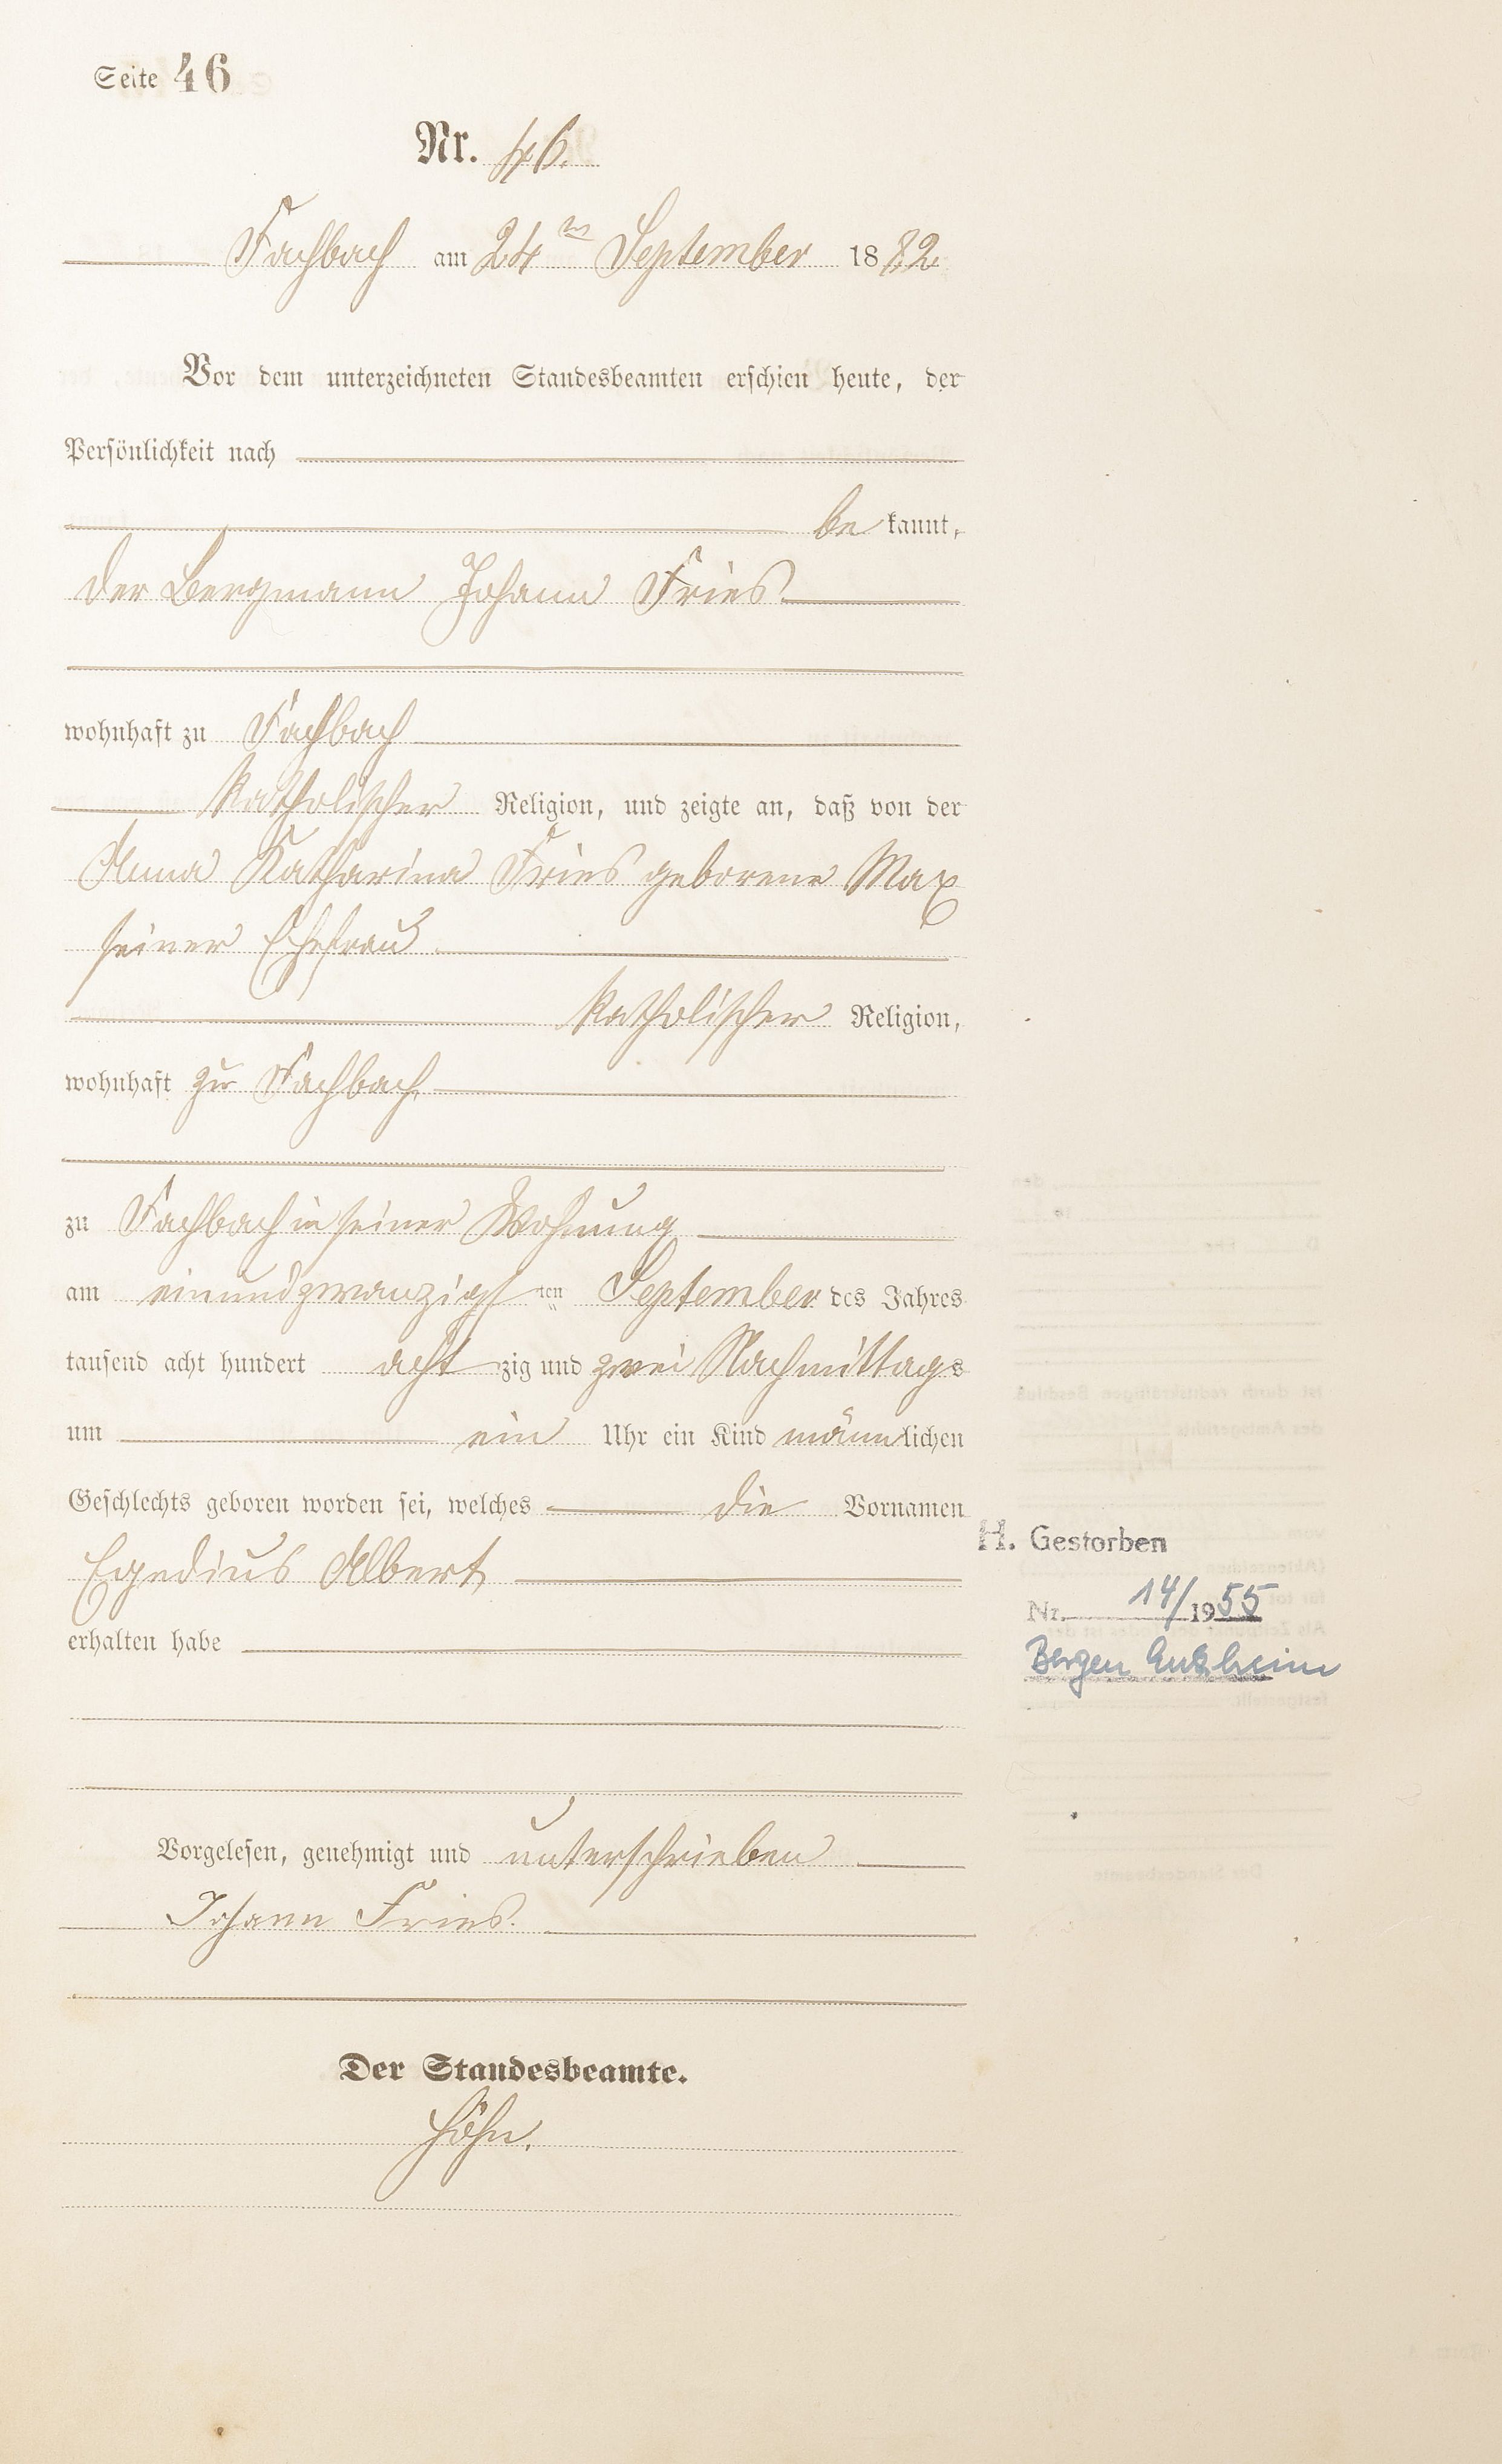 Seite 46
Nr. 46.
Fachbach am 24ten September 1882.
Vor dem unterzeichneten Standesbeamten erschien heute, der
Persönlichkeit nach
be kannt,
der Bergmann Johann Fries
wohnhaft zu Fachbach
katholischer Religion, und zeigte an, daß von der
Anna Katharina Fries geborene Max
seiner Ehefrau
katholischer Religion,
wohnhaft zu Fachbach
zu Fachbach in seiner Wohnung
am einundzwanzigsten September des Jahres
tausend acht hundert acht zig und zwei Nachmittags
um ein Uhr ein Kind männlichen
Geschlechts geboren worden sei, welches die Vornamen
Egedius Albert
erhalten habe
H. Gestorben
Nr. 14/1955
Bergen Enkheim
Vorgelesen, genehmigt und unterschrieben
Johann Fries.
Der Standesbeamte.
Höhn.